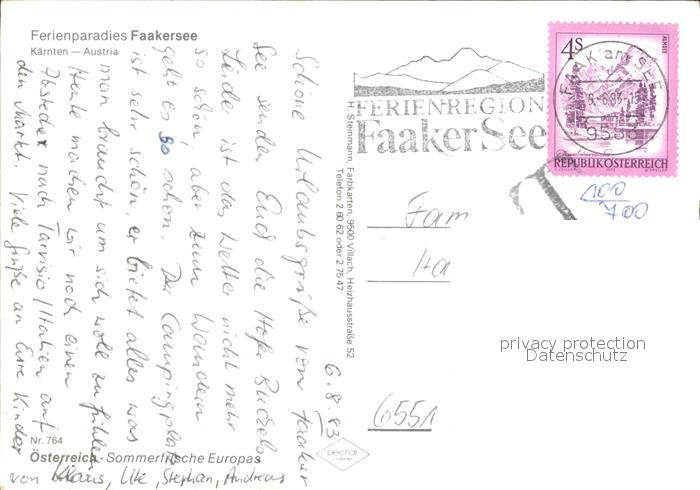 Ferienparadies Faakersee
Kärnten — Austria
Schöne Urlaubsgrüße vom Faaker
See senden Euch die
Leider ist das Wetter nicht mehr
so schön, aber zum Wandern
geht es so schon. Der Campingplatz
ist sehr schön, er bietet alles was
man braucht um sich wohl zu fühlen
Heute machen wir noch einen
Abstecher nach Tarvisio/Italien auf
den Markt. Viele Grüße an Eure Kinder
von Klaus, Ute, Stephan, Andreas
6.8.83
Nr. 764
Österreich · Sommerfrische Europas
H. Steinmann, Farbkarten, 9500 Villach, Heizhausstraße 52
Telefon 2 60 62 oder 2 75 47
FERIENREGION
Faaker See
4S
ALMSEE
FAAK am SEE
REPUBLIK ÖSTERREICH
T
100
700
Fam
Ha
6551
privacy protection
Datenschutz